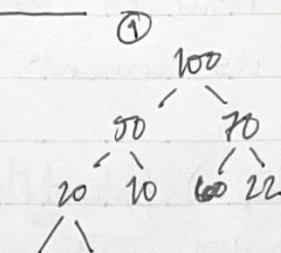 ①
100
90 70
20 10 60 22